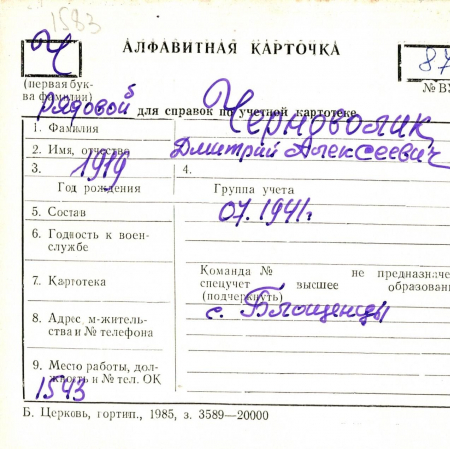 1583
Ч
АЛФАВИТНАЯ КАРТОЧКА
87
(первая бук-
ва фамилии)
№ ВУ
рядовой
для справок по учетной картотеке
1. Фамилия
Черноволик
2. Имя, отчество
Дмитрий Алексеевич
3.
1919
4.
Год рождения
Группа учета
5. Состав
07.1941г.
6. Годность к воен-
ной службе
Команда № не предназначе
7. Картотека
спецучет высшее образовани
(подчеркнуть)
8. Адрес м-житель-
ства и № телефона
с. Блощинцы
9. Место работы, дол-
жность и № тел. ОК
1543
Б. Церковь, гортип., 1985, з. 3589—20000